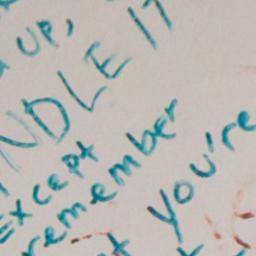 up,
NDLE IT
Except
remember
you're